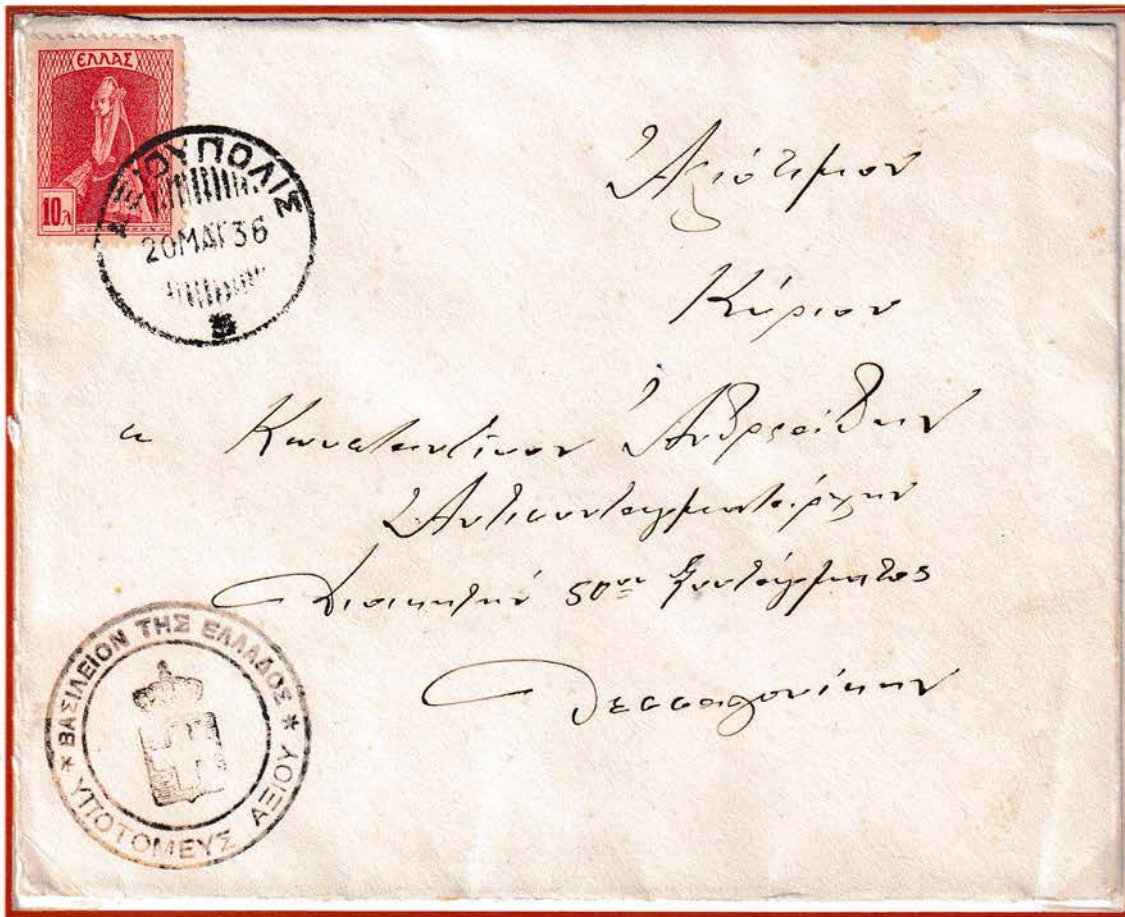 ΕΛΛΑΣ
10λ
ΑΞΙΟΥΠΟΛΙΣ
20 ΜΑΪ 36
Ἀξιότιμον
Κύριον
κ Κωνσταντῖνον Ἀνδρεάδην
Ἀντισυνταγματάρχην
Διοικητήν 50οῦ Συντάγματος
Θεσσαλονίκην
* ΒΑΣΙΛΕΙΟΝ ΤΗΣ ΕΛΛΑΔΟΣ *
ΥΠΟΤΟΜΕΥΣ ΑΞΙΟΥ